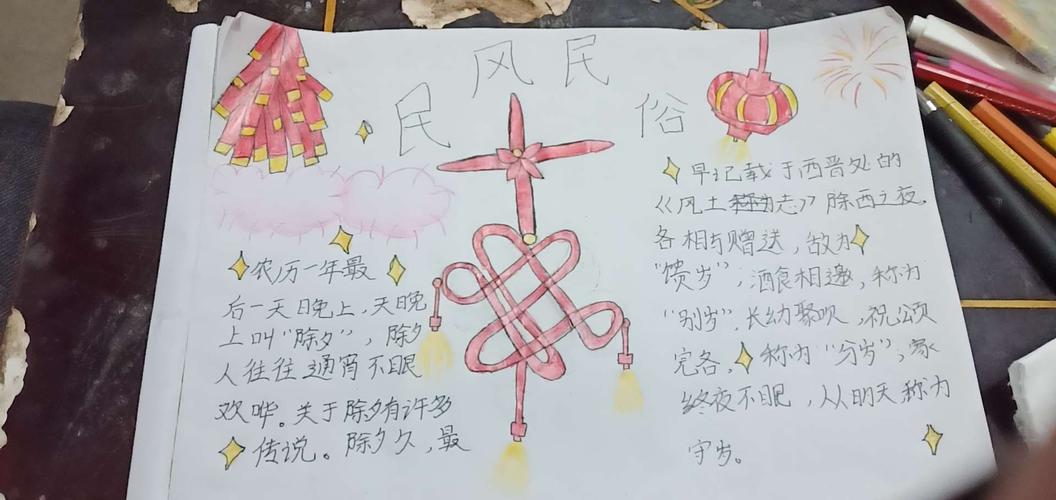 民风民俗
农历一年最
后一天日晚上，天晚
上叫"除夕"，除夕
人往往通宵不眠
欢哗。关于除夕有许多
传说。除夕久，最
早记载于西晋处的
《风土志》除西之夜，
各相与赠送，故为
"馈岁"；酒食相邀，称为
"别岁"．长幼聚吹，祝颂
完各．称为"分岁"；家
终夜不眠，从明天称为
守岁。